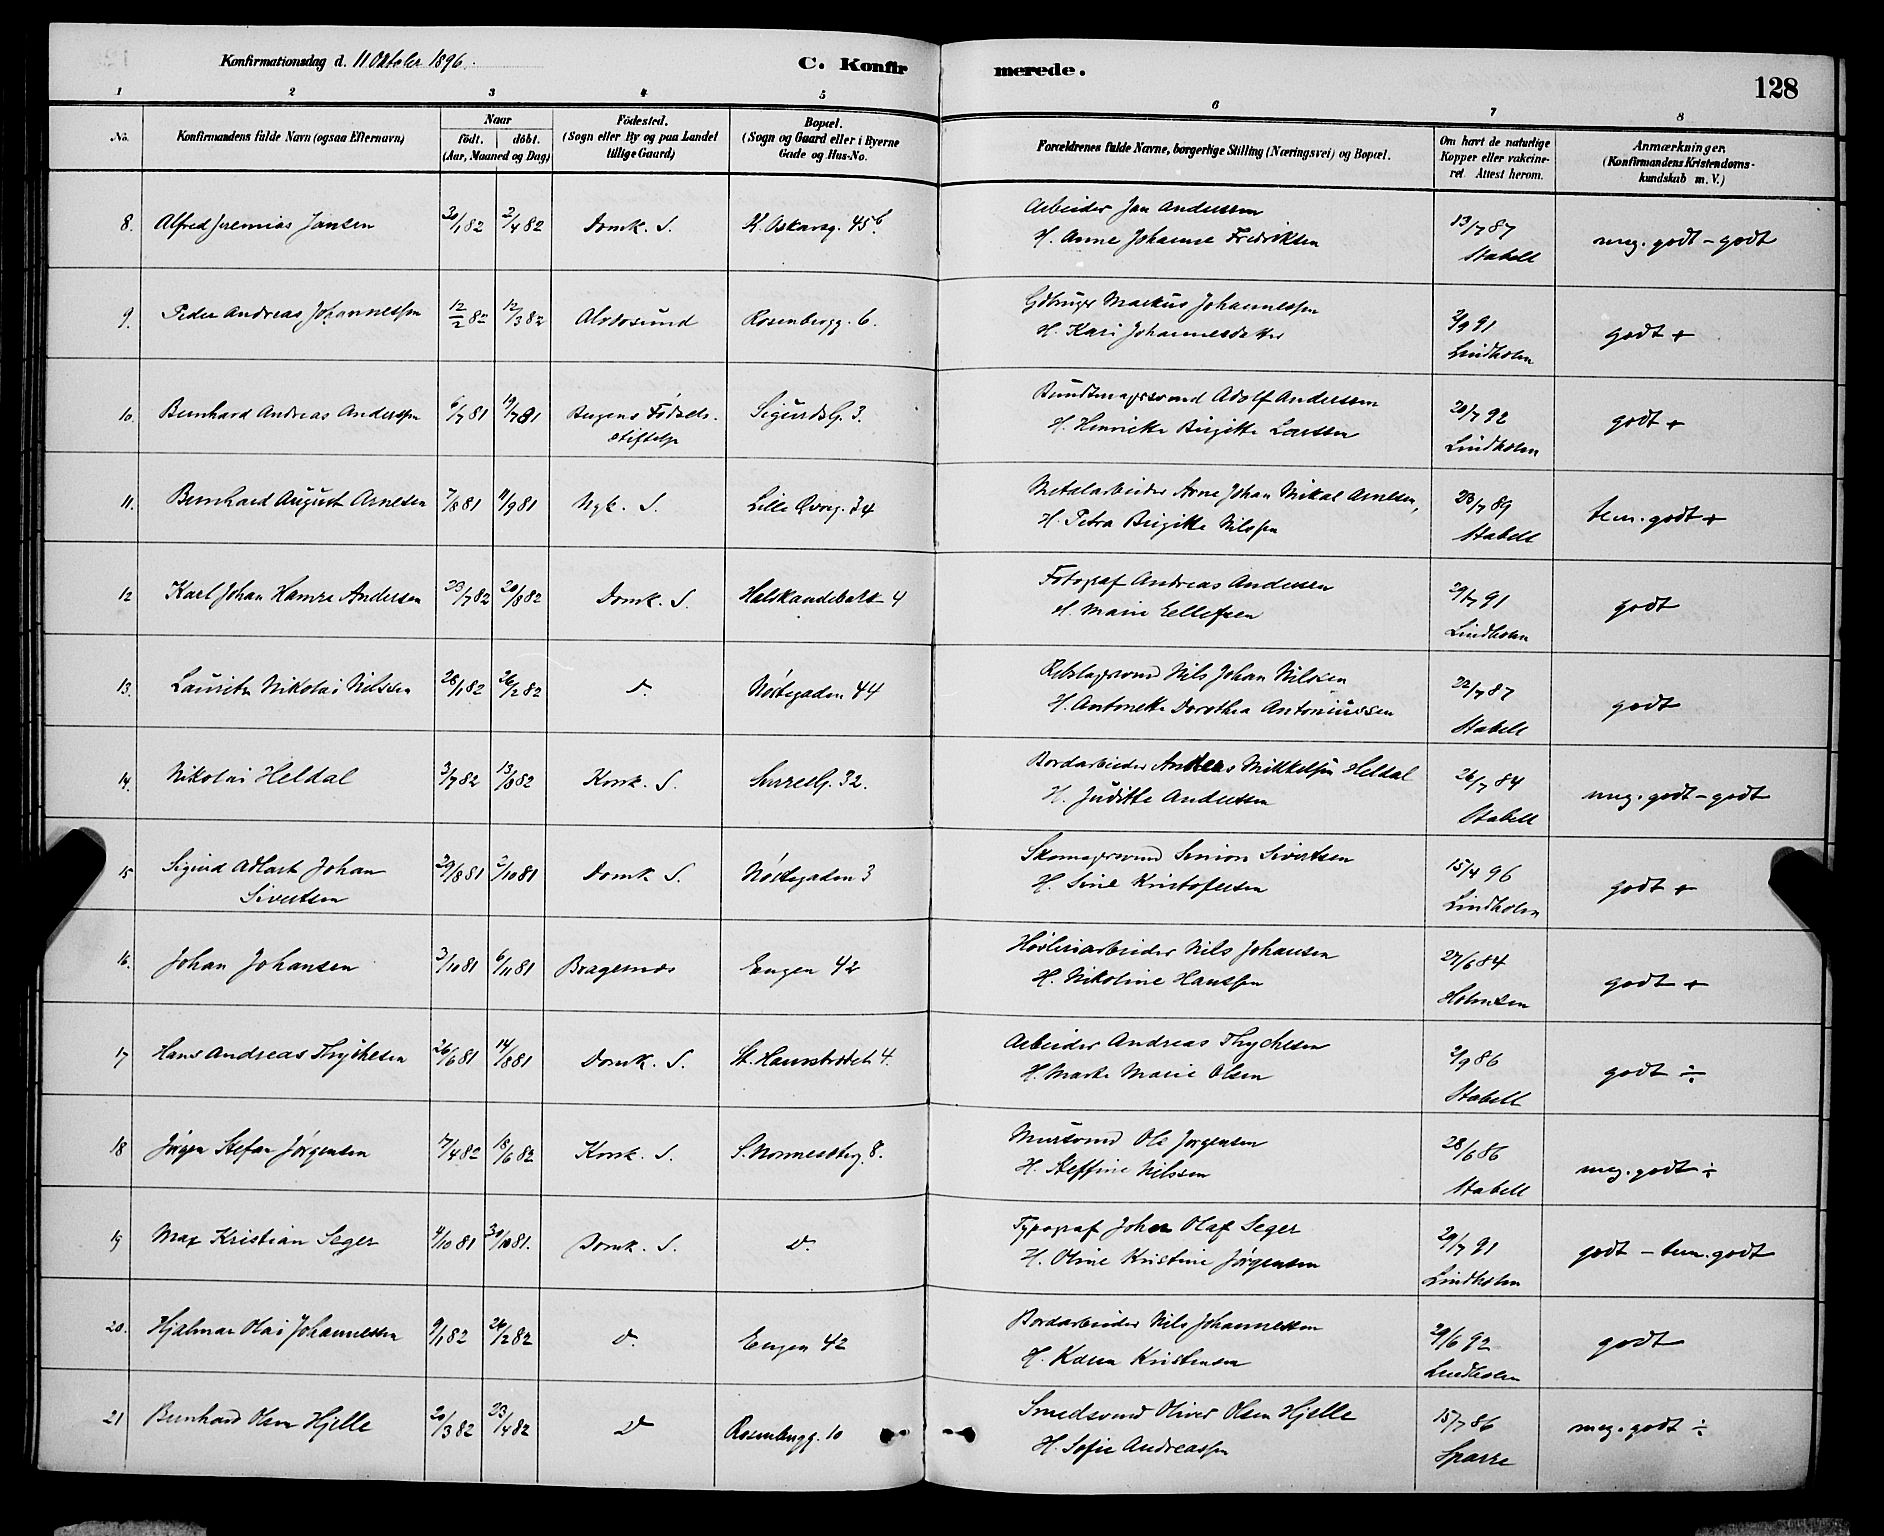 Konfirmationsdag d. 11 Oktober 1896.
C. Konfirmerede.
128
1 2 3 4 5 6 7 8
No.
Konfirmandens fulde Navn (ogsaa Efternavn)
Naar
födt. döbt.
(Aar, Maaned og Dag)
Födested.
(Sogn eller By og paa Landet
tillige Gaard)
Bopæl.
(Sogn og Gaard eller i Byerne
Gade og Hus-No.
Forældrenes fulde Navne, borgerlige Stilling (Næringsvei) og Bopæl.
Om havt de naturlige
Kopper eller vakcine-
ret. Attest herom.
Anmærkninger.
(Konfirmandens Kristendoms-
kundskab m. V.)
8. Alfred Jeremias Jansen 30/1 82 2/4 82 Domk. S. K. Oskarsg. 45b. Arbeider Jan Andersen 13/7 87 meg. godt - godt
H. Anne Johanne Fredriksen Stabell
9. Peder Andreas Johannessen 12/2 82 12/3 82 Rosenbergg. 6. Markus Johannessen 2/9 91 godt +
H. Kari Lindholm
10. Bernhard Andreas Andersen 6/7 81 19/7 81 Bergens Fødsels- Sigurdsg. 3. Bundtmagersvend Adolf Andersen 20/7 92 godt +
stiftelse H. Henrikke Birgitte Larssen Lindholm
11. Bernhard August Arnesen 7/8 81 11/9 81 Nyk. S. Lille Øvreg. 34 Metalarbeider Arne Johan Mikal Arnesen, 23/7 89 tem. godt +
H. Petra Birgitte Nilssen Stabell
12 Karl Johan Hamre Andersen 23/7 82 20/8 82 Domk. S. 4 Fotograf Andreas Andersen 29/7 91 godt
H. Marie Ellefsen Lindholm
13. Lauritz Nikolai Nilssen 28/1 82 26/2 82 D. Nöstegaden 44 Rebslagersvend Nils Johan Nilsen 22/7 87 godt
H. Antonette Dorothea Antoniussen Stabell
14. Nikolai Heldal 3/7 82 13/8 82 Korsk. S. Sverresg. 32. Bordarbeider Andreas Mikkelsen Heldal 26/7 84 meg. godt - godt
H. Juditte Andersen Stabell
15 Sigurd Adlart Johan 29/8 81 2/10 81 Domk S. Nöstegaden 3 Skomagersvend Simon Sivertsen 15/4 96 godt +
Sivertsen H. Sine Kristofersen Lindholm
16. Johan Johansen 3/10 81 6/11 81 Bragernæs Engen 42 Høvleriarbeider Nils Johansen 27/6 84 godt +
H. Nikoline Hanssen Holmsen
17 Hans Andreas Thychesen 26/6 81 14/8 81 Domk. S. St. Hansstrædet 4. Arbeider Andreas Thychesen 2/9 86 godt ÷
H. Marte Marie Olsen Stabell
18 Jörgen Stefan Jörgensen 17/4 82 18/6 82 Korsk. S. 8. Mursvend Ole Jørgensen 28/6 86 meg. godt ÷
H. Steffine Nilssen Stabell
19 Max Kristian Seger 4/10 81 30/10 81. Domk. S. D. Typograf Johan Olaf Seger 29/7 91 godt - tem. godt
H. Oline Kristine Jørgensen Lindholm
20. Hjalmar Olai Johannessen 9/1 82 26/2 82 D. Engen 42 Bordarbeider Nils Johannessen 29/6 92 godt
H. Karen Kristensen Lindholm
21 Bernhard Olsen Hjelle 20/3 82 23/4 82 D Rosenbergg. 10 Smedsvend Oliver Olsen Hjelle 15/7 86 meg. godt ÷
H. Sofie Andreassen Sparre